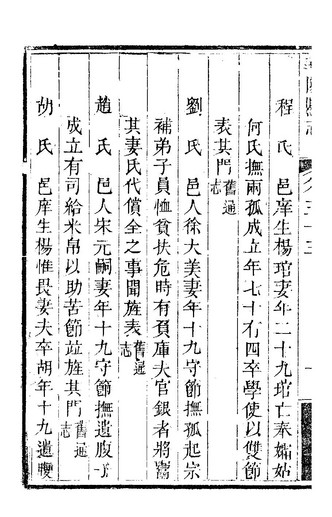 程氏　邑庠生楊琯妻年二十九琯亡奉孀姑
何氏撫兩孤成立年七十有四卒學使以雙節
表其門舊通志
劉氏　邑人徐大美妻年十九守節撫孤起宗
補弟子員恤貧扶危時有負庫夫官銀者將鬻
其妻氏代償全之事聞旌表舊通志
趙氏　邑人宋元嗣妻年十九守節撫遺腹子
成立有司給米帛以助苦節並旌其門舊通志
胡氏　邑庠生楊惟畏妻夫卒胡年十九遺腹
卷三十三